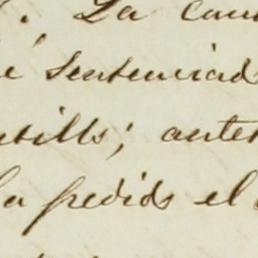 La cau
é sentenciad
utills; anter
la pedids el